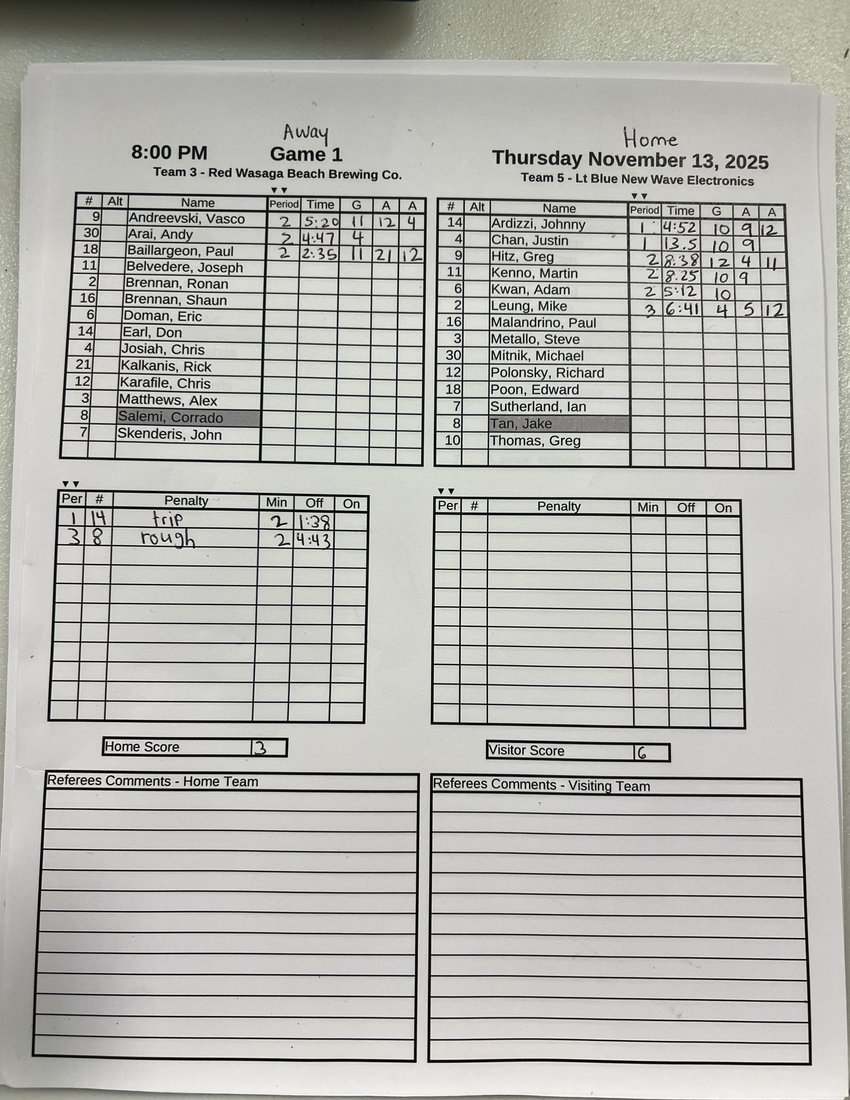 Away
Home
8:00 PM Game 1
Thursday November 13, 2025
Team 3 - Red Wasaga Beach Brewing Co.
Team 5 - Lt Blue New Wave Electronics
# Alt Name Period Time G A A
9 Andreevski, Vasco 2 5:20 11 12 4
30 Arai, Andy 2 4:47 4
18 Baillargeon, Paul 2 2:35 11 21 12
11 Belvedere, Joseph
2 Brennan, Ronan
16 Brennan, Shaun
6 Doman, Eric
14 Earl, Don
4 Josiah, Chris
21 Kalkanis, Rick
12 Karafile, Chris
3 Matthews, Alex
8 Salemi, Corrado
7 Skenderis, John
# Alt Name Period Time G A A
14 Ardizzi, Johnny 1 4:52 10 9 12
4 Chan, Justin 1 13.5 10 9
9 Hitz, Greg 2 8:38 12 4 11
11 Kenno, Martin 2 8:25 10 9
6 Kwan, Adam 2 5:12 10
2 Leung, Mike 3 6:41 4 5 12
16 Malandrino, Paul
3 Metallo, Steve
30 Mitnik, Michael
12 Polonsky, Richard
18 Poon, Edward
7 Sutherland, Ian
8 Tan, Jake
10 Thomas, Greg
Per # Penalty Min Off On
1 14 trip 2 1:38
3 8 rough 2 4:43
Per # Penalty Min Off On
Home Score 3
Visitor Score 6
Referees Comments - Home Team
Referees Comments - Visiting Team